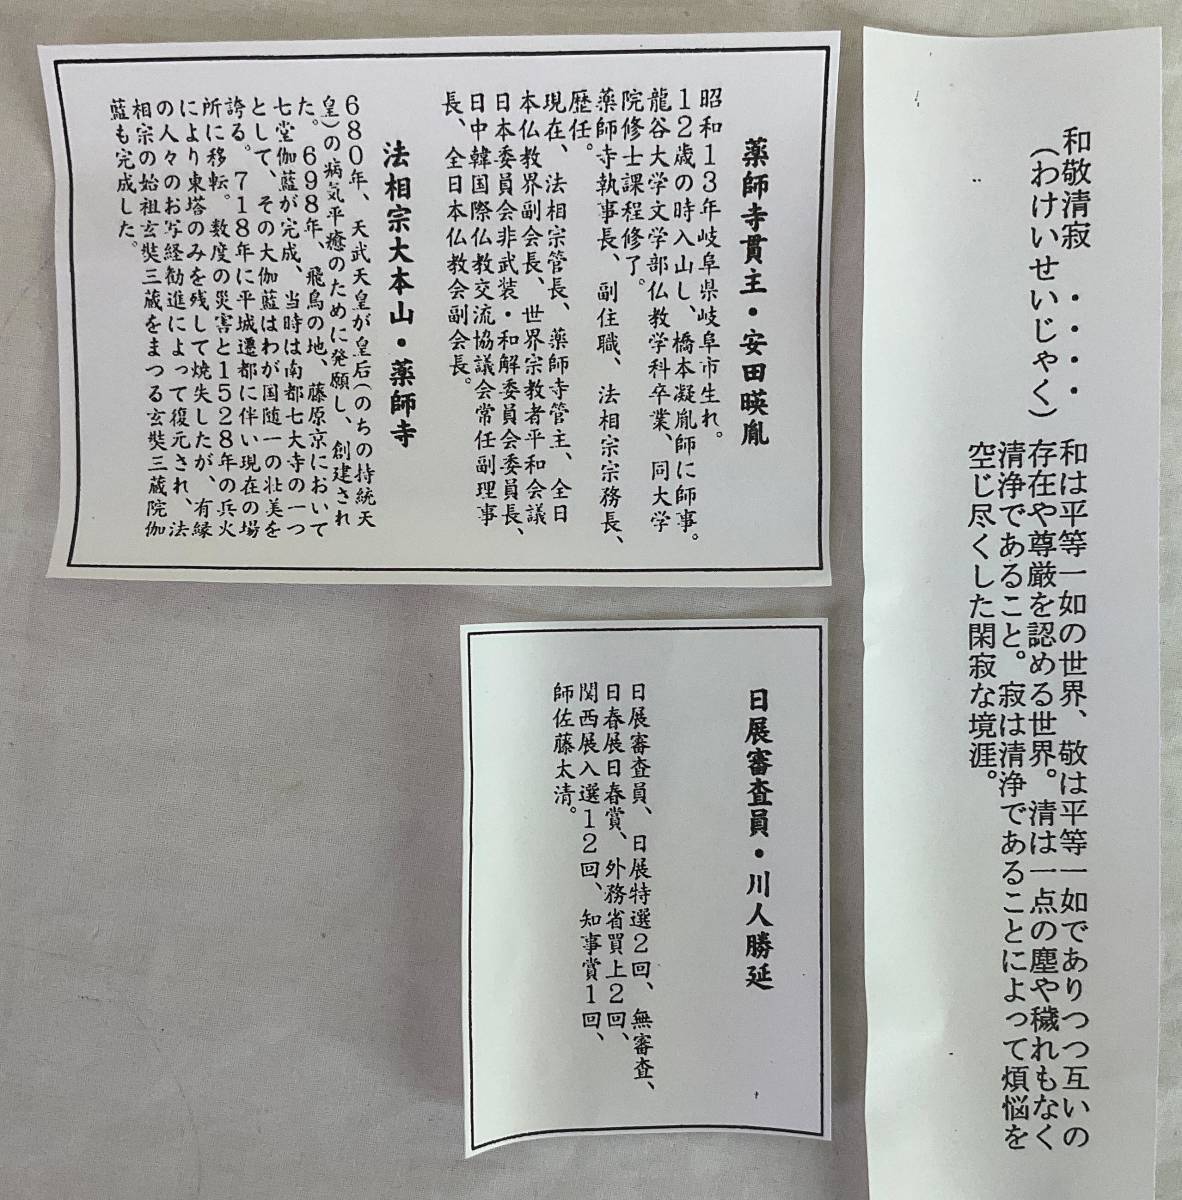 和敬清寂 ・・・・
（わけいせいじゃく）
和は平等一如の世界、敬は平等一如でありつつ互いの
存在や尊厳を認める世界。清は一点の塵や穢れもなく
清浄であること。寂は清浄であることによって煩悩を
空じ尽くした閑寂な境涯。
薬師寺貫主・安田暎胤
昭和１３年岐阜県岐阜市生れ。
１２歳の時入山し、橋本凝胤師に師事。
龍谷大学文学部仏教学科卒業、同大学
院修士課程修了。
薬師寺執事長、副住職、法相宗宗務長、
歴任。
現在、法相宗管長、薬師寺管主、全日
本仏教界副会長、世界宗教者平和会議
日本委員会非武装・和解委員会委員長、
日中韓国際仏教交流協議会常任副理事
長、全日本仏教会副会長。
法相宗大本山・薬師寺
６８０年、天武天皇が皇后（のちの持統天
皇）の病気平癒のために発願し、創建され
た。６９８年、飛鳥の地、藤原京において
七堂伽藍が完成、当時は南都七大寺の一つ
として、その大伽藍はわが国随一の壮美を
誇る。７１８年に平城遷都に伴い現在の場
所に移転。数度の災害と１５２８年の兵火
により東塔のみを残して焼失したが、有縁
の人々のお写経勧進によって復元され、法
相宗の始祖玄奘三蔵をまつる玄奘三蔵院伽
藍も完成した。
日展審査員・川人勝延
日展審査員、日展特選２回、無審査、
日春展日春賞、外務省買上２回、
関西展入選１２回、知事賞１回、
師佐藤太清。